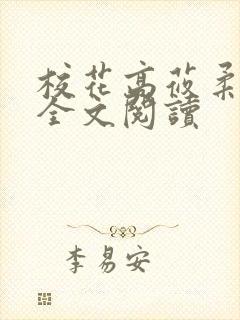 校花高莜柔
全文閱讀
李易安